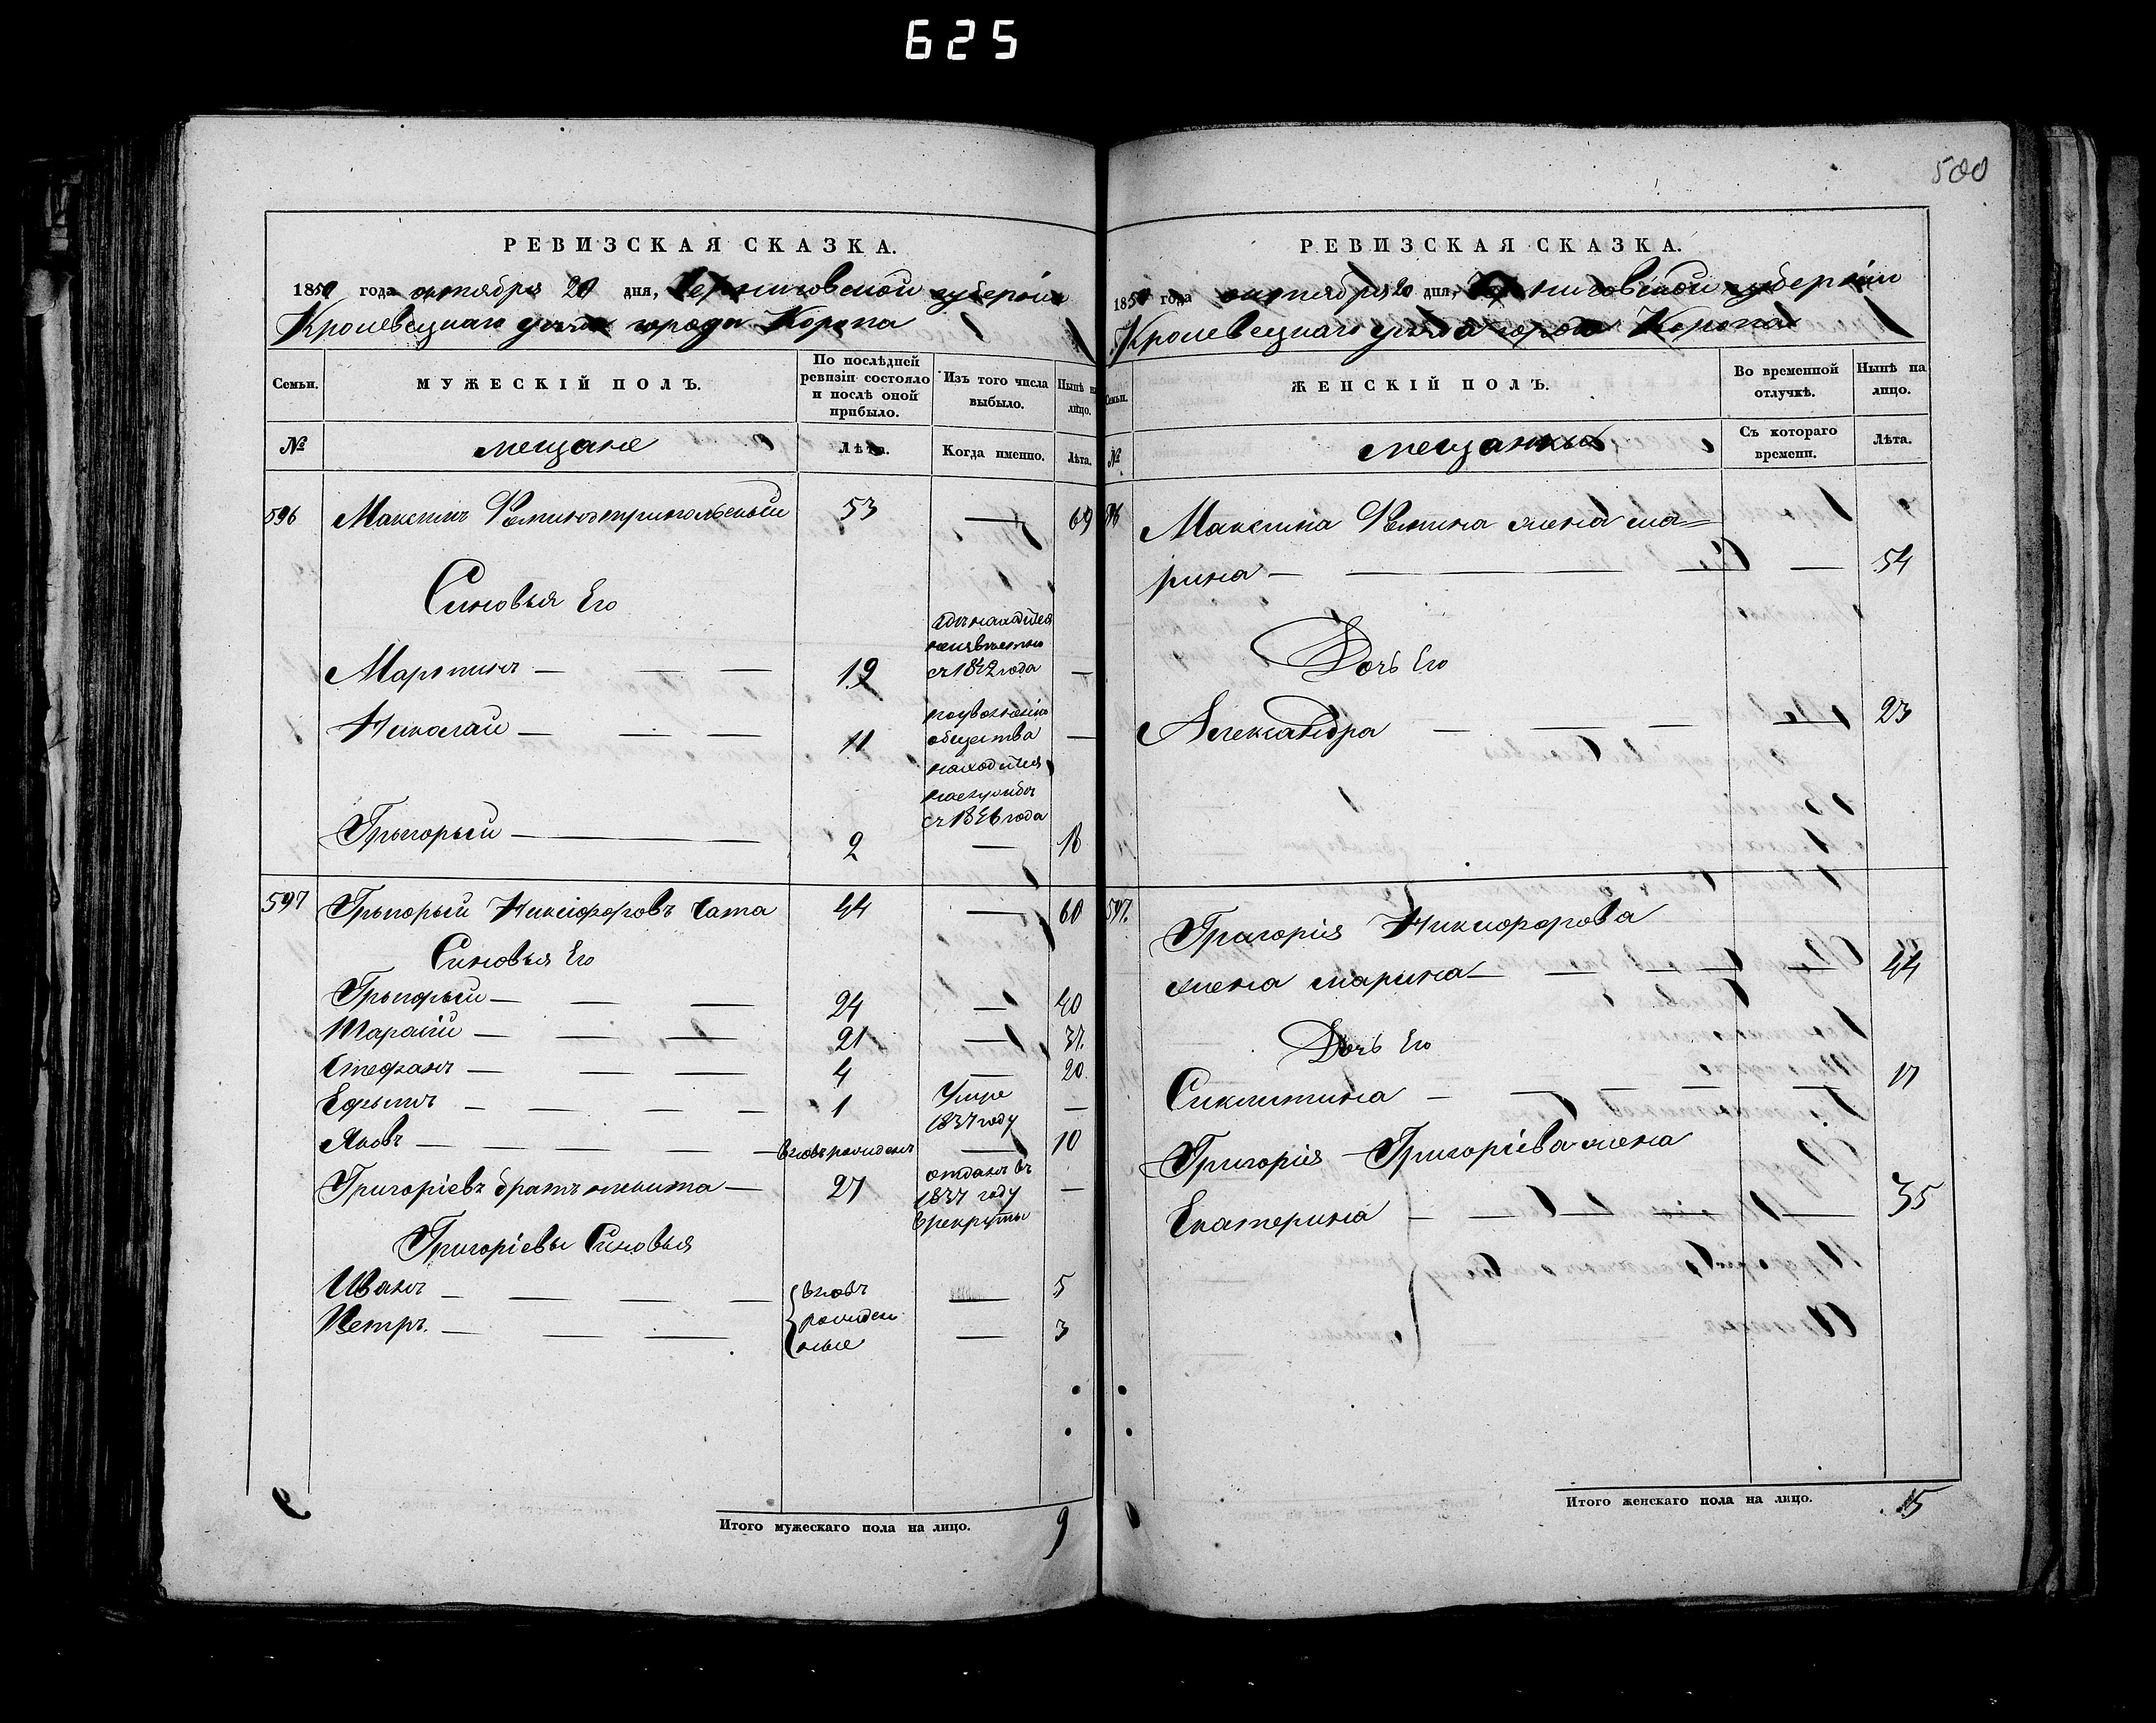 625
500
РЕВИЗСКАЯ СКАЗКА.
1850 года октября 20 дня, Черниговской губерніи
Кролевецкаго уезда города Коропа
Семьи.
МУЖЕСКІЙ ПОЛЪ.
По послѣдней ревизіи состояло и послѣ оной прибыло.
Изъ того числа выбыло.
Нынѣ на лицо.
№
мещане
Лѣта.
Когда именно.
Лѣта.
596 Максимъ 53 — 69
Синовья Его
Мартинъ — — — 19 — 
с 1842 года
Николай — — — 11 — 
общества
находится
с 1846 года
Грыгорый — 2 — 18
597 Грыгорый Никифоровъ Чата 44 — 60
Синовья Его
Грыгорый — — — 24 — 40
Тарасій — — — 21 — 37.
Стефанъ — — — 4 — 20
Ефымъ — — — — 1 Умре 1837 году —
Яковъ — — — — вновь рожденъ — 10
Григоріевъ братъ никита — 27 отданъ въ 1837 году в рекруты —
Григоріевы Синовья
Иванъ — — — — вновь рожденные — 5
Петръ. — — — — 3
Итого мужескаго пола на лицо. 9
РЕВИЗСКАЯ СКАЗКА.
1850 года октября 20 дня, Черниговской губерніи
Кролевецкаго уезда города Коропа
Семьи.
ЖЕНСКІЙ ПОЛЪ.
Во временной отлучкѣ.
Нынѣ на лицо.
№
мещанкы
Съ котораго времени.
Лѣта.
596 Максима Фомина жена ма=
рина — — — — — 54
Дочь Его
Александра — — — — 23
597. Григорія Никифорова
жена марина — — — — — 44
Дочь Его
Сиклитина — — — — — 17
Григорія Григоріева жена
Екатерина — — — — — 35
Итого женскаго пола на лицо. 5